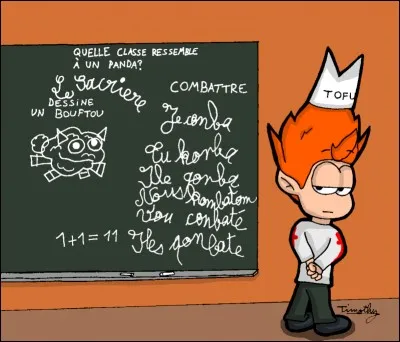 QUELLE CLASSE RESSEMBLE
À UN PANDA?
Le Sacriere
DESSINE
UN BOUFTOU
COMBATTRE
Je conba
Tu konba
Ile qonba
Nous kombatom
Vou conbaté
1+1=11
Iles qonbate
TOFU
Timothy